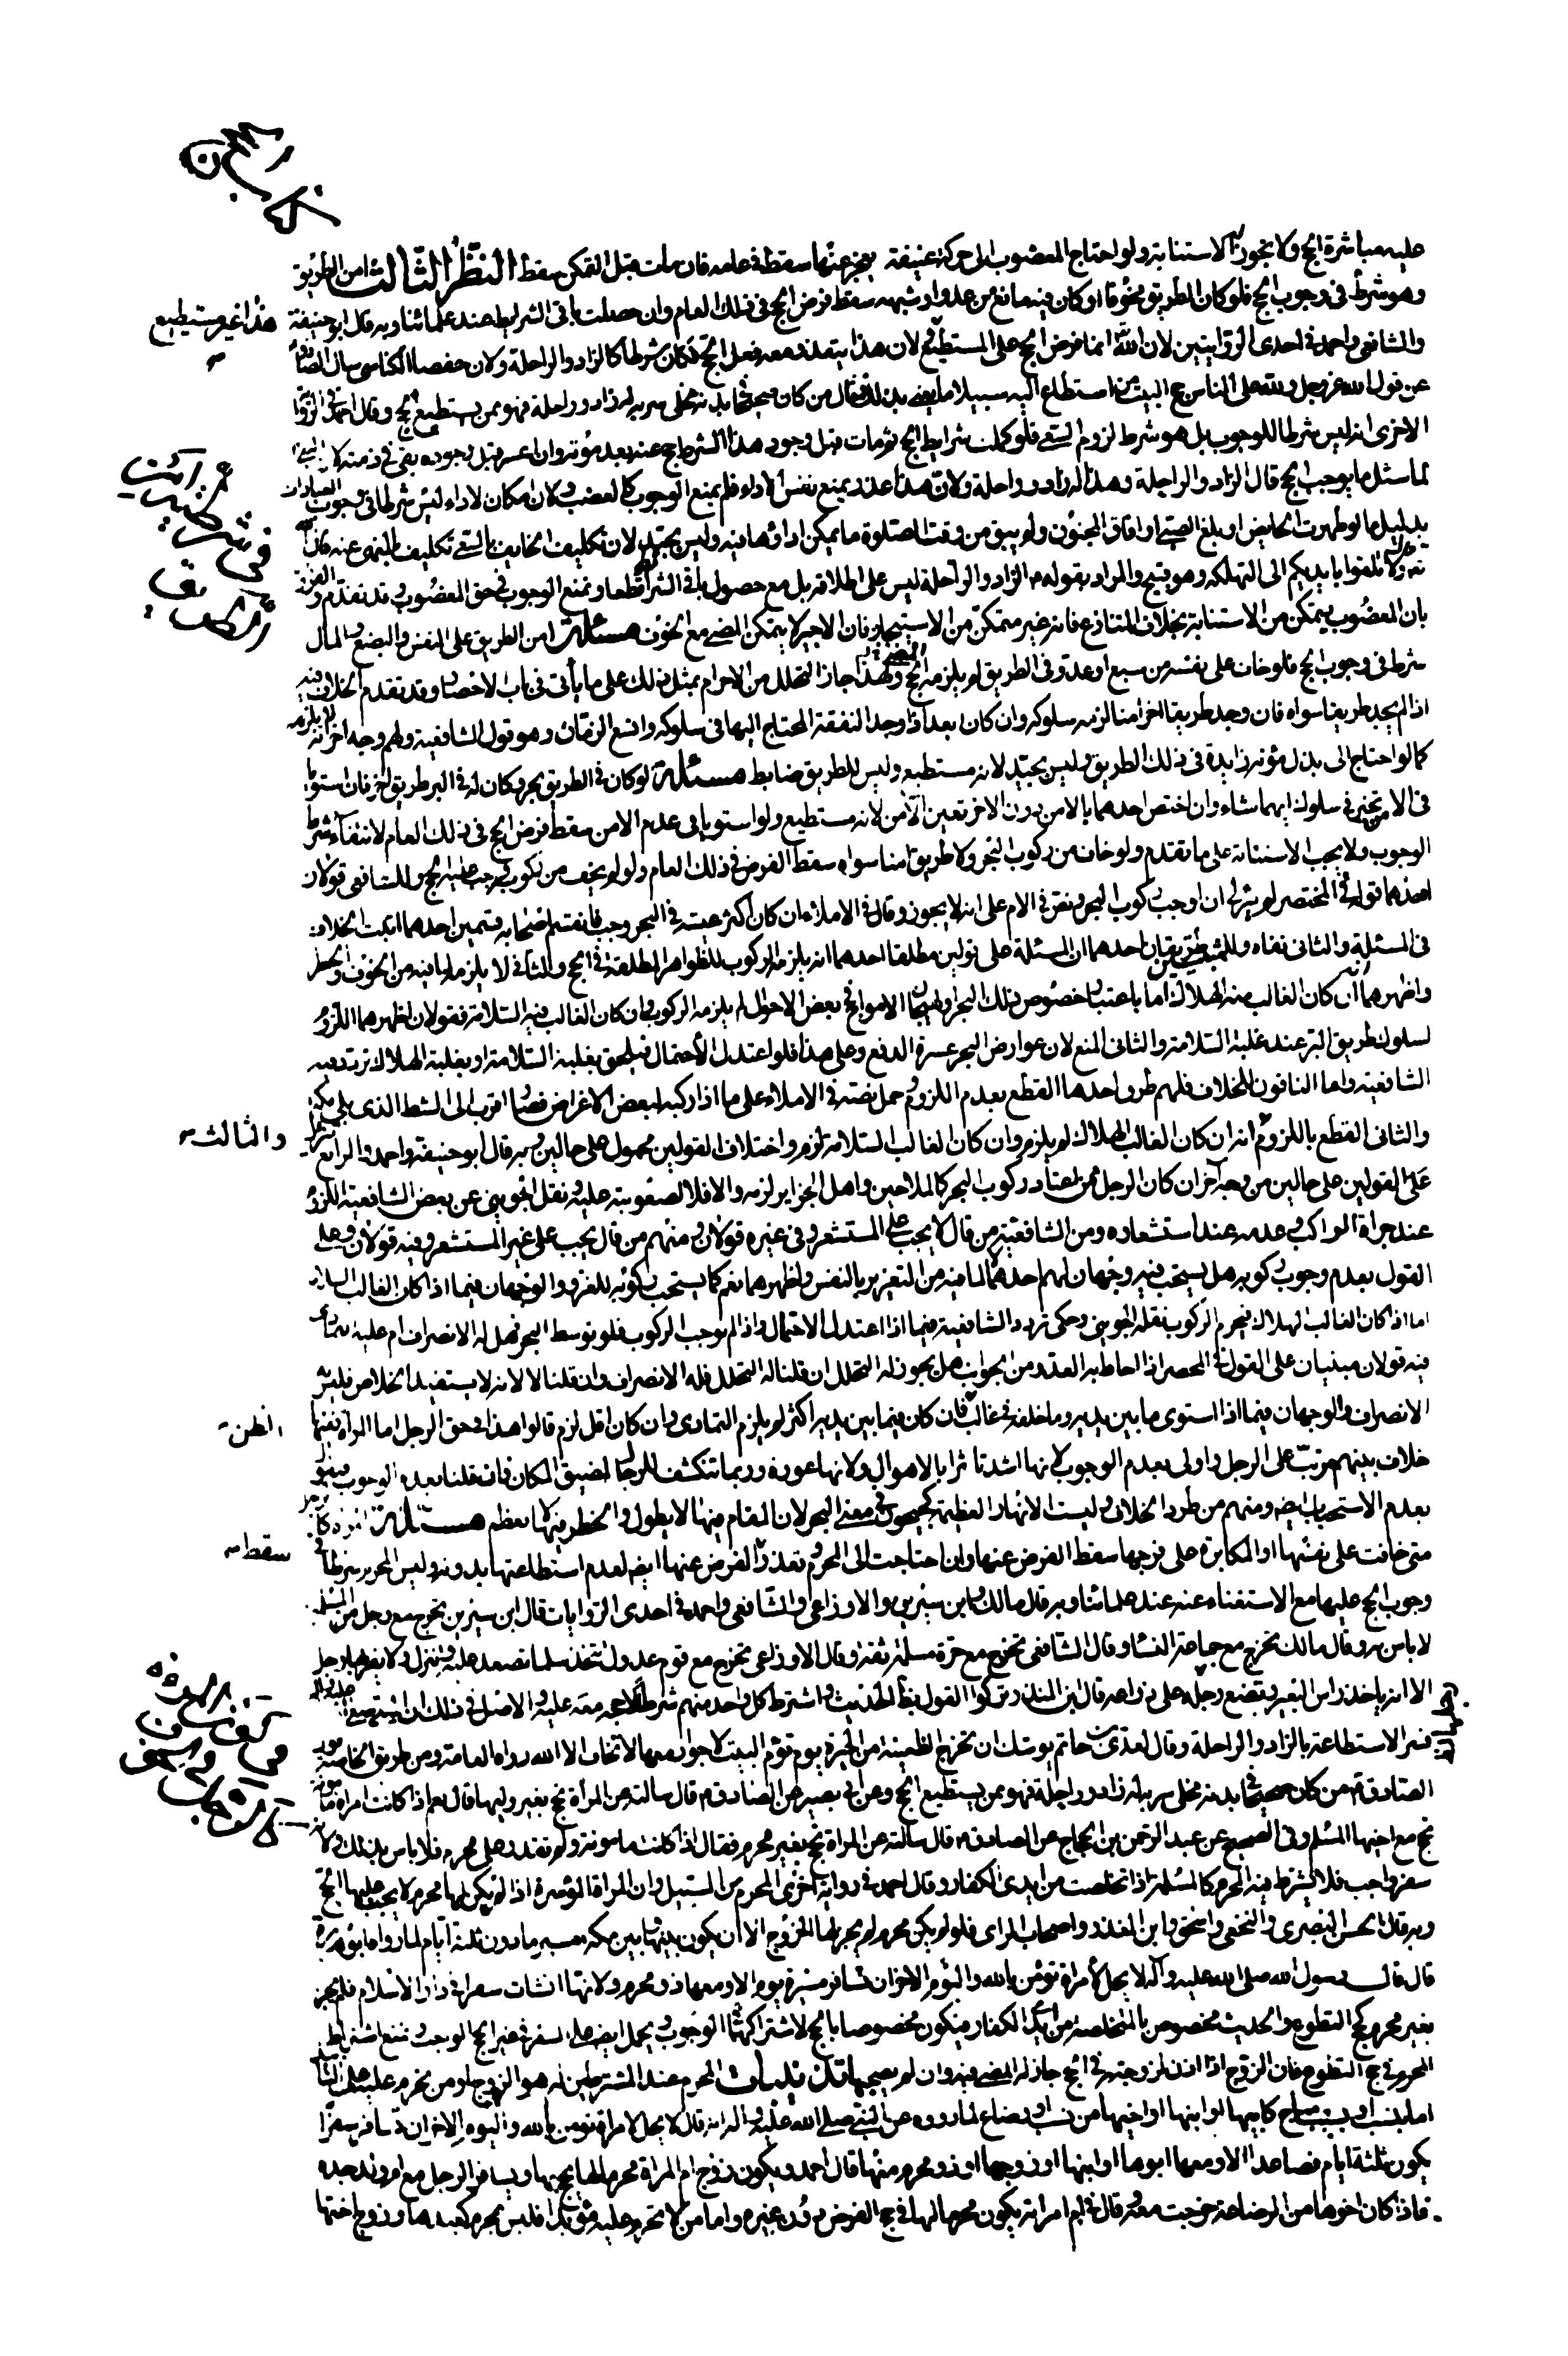 عليه مباشرة الحج ولا يجوز له الاستنابة ولو احتاج المعضوب الى حركة عنيفة يعجز عنها سقط في عامه فان مات قبل التمكن سقط النظر الثالث امن الطريق
وهو شرط في وجوب الحج فلو كان الطريق مخوفا او كان فيه مانع من عدو او شبهه سقط فرض الحج في ذلك العام وان حصلت باقي الشرايط عند علمائنا وبه قال ابو حنيفة
والشافعي واحمد في احدى الروايتين لان الله انما فرض الحج على المستطيع لان هذا يتعذر معه فعل الحج فكان شرطا كالزاد والراحلة ولان حفصا الكناسي سال الصادق
عن قول الله عز وجل ولله على الناس حج البيت من استطاع اليه سبيلا ما يعني بذلك فقال من كان صحيحا بدنه مخلى سربه له زاد وراحلة فهو ممن يستطيع الحج وقال احمد في الرواية
الاخرى انه ليس شرطا للوجوب بل هو شرط لزوم السعي فلو كملت شرايط الحج ثم مات قبل وجود هذا الشرط حج عنه بعد موته وان اعسر قبل وجوده بقي في ذمته لانه
لما سئل ما يوجب الحج قال الزاد والراحلة وهذا له زاد وراحلة ولان هذا عذر يمنع نفس الاداء فلم يمنع الوجوب كالعضب ولان امكان الاداء ليس شرطا في وجوب العبادات
بدليل ما لو طهرت الحايض او بلغ الصبي او افاق المجنون ولم يبق من وقت الصلوة ما يمكن اداؤها فيه وليس بجيد لان تكليف الخايف بالسعي تكليف بالمنهي عنه قال الله
تعالى ولا تلقوا بايديكم الى التهلكة وهو قبيح والمراد بقوله الزاد والراحلة ليس على اطلاقه بل مع حصول باقي الشرائط قطعا ونمنع الوجوب في حق المعضوب وقد تقدم والفرق
بان المعضوب يتمكن من الاستنابة بخلاف المتنازع فانه غير متمكن من الاستيجار فان الاجير لا يتمكن المضي مع الخوف مسئلة امن الطريق على النفس والبضع والمال
شرط في وجوب الحج فلو خاف على نفسه من سبع او عدو في الطريق لم يلزمه الحج ولهذا جاز التحلل من الاحرام بمثل ذلك على ما يأتي في باب الاحصار وقد تقدم الخلاف فيه
اذا لم يجد طريقا سواه فان وجد طريقا اخر امنا لزمه سلوكه وان كان ابعد اذا وجد النفقة المحتاج اليها في سلوكه واتسع الزمان وهو قول الشافعية ولهم وجه اخر انه لا يلزمه
كما لو احتاج الى بذل مؤنة زايدة في ذلك الطريق وليس بجيد لانه مستطيع وليس للطريق ضابط مسئلة لو كان في الطريق بحر وكان له في البر طريق اخر فان استويا
في الامن تخير في سلوك ايهما شاء وان اختص احدهما بالامن دون الاخر تعين الآمن لانه مستطيع ولو استويا في عدم الامن سقط فرض الحج في ذلك العام لانتفاء شرط
الوجوب ولا يجب الاستنابة على ما تقدم ولو خاف من ركوب البحر ولا طريق امنا سواه سقط الفرض في ذلك العام ولو لم يخف من ركوبه وجب عليه الحج وللشافعي قولان
احدهما قوله في المختصر لم يتبين لي ان اوجب ركوب البحر ونص في الام على انه لا يجوز وقال في الاملاء ان كان اكثر عيشه في البحر وجب فانقسم اصحابه قسمين احدهما اثبت الخلاف
في المسئلة والثاني نفاه وللمثبتين طريقان احدهما ان المسئلة على قولين مطلقا احدهما انه يلزمه الركوب للظواهر المطلقة في الحج والثاني لا يلزمه لما فيه من الخوف والخطر
واظهرهما انه ان كان الغالب منه الهلاك اما باعتبار خصوص ذلك البحر او لهيجان الامواج في بعض الاحوال لم يلزمه الركوب وان كان الغالب فيه السلامة فقولان اظهرهما اللزوم
لسلوك طريق البر عند غلبة السلامة والثاني المنع لان عوارض البحر عسرة الدفع وعلى هذا فلو اعتدل الاحتمال فيلحق بغلبة السلامة او بغلبة الهلاك تردد فيه
الشافعية واما النافون للخلاف فلهم طرق احدها القطع بعدم اللزوم وحمل نصه في الاملاء على ما اذا ركبه لبعض الاغراض فصار اقرب الى الشط الذي يلي مكة
والثاني القطع باللزوم والثالث انه ان كان الغالب الهلاك لم يلزم وان كان الغالب السلامة لزم واختلاف القولين محمول على حالين وبه قال ابو حنيفة واحمد والرابع تنزيل
القولين على حالين من وجه آخر ان كان الرجل ممن اعتاد ركوب البحر كالملاحين واهل الجزاير لزمه والا فلا لصعوبته عليه ونقل الجويني عن بعض الشافعية اللزوم
عند جراة الراكب وعدمه عند استشعاره ومن الشافعية من قال لا يجب على المستشعر وفي غيره قولان ومنهم من قال يجب على غير المستشعر وفيه قولان وعلى
القول بعدم وجوب ركوبه هل يستحب فيه وجهان لهم احدهما لا لما فيه من التغرير بالنفس واظهرهما نعم كما يستحب ركوبه للغزو والوجهان فيما اذا كان الغالب السلامة
اما اذا كان الغالب الهلاك فيحرم الركوب نقله الجويني وحكى تردد الشافعية فيما اذا اعتدل الاحتمال واذا لم نوجب الركوب فلو توسط البحر فهل له الانصراف ام عليه التمادي
فيه قولان مبنيان على القولين في المحصر اذا احاط به العدو من الجوانب هل يجوز له التحلل ان قلنا له التحلل فله الانصراف وان قلنا لا لانه لا يستفيد الخلاص فليس له
الانصراف والوجهان فيما اذا استوى ما بين يديه وما خلفه في غالب الظن فان كان فيما بين يديه اكثر لم يلزم التمادي وان كان اقل لزم قالوا هذا في حق الرجل اما المرأة ففيها
خلاف بينهم مرتب على الرجل واولى بعدم الوجوب لانها اشد تاثرا بالاهوال ولانها عورة وربما تنكشف للرجال لضيق المكان فان قلنا بعدم الوجوب فنقول
بعدم الاستحباب ايضا ومنهم من طرد الخلاف وليست الانهار العظيمة كجيحون في معنى البحر لان المقام فيها لا يطول والخطر فيها لا يعظم مسئلة المرأة كالرجل
متى خافت على نفسها او المكابرة على فرجها سقط الفرض عنها وان احتاجت الى المحرم وتعذر سقط الفرض عنها ايضا لعدم استطاعتها بدونه وليس المحرم شرطا في
وجوب الحج عليها مع الاستغناء عنه عند علمائنا وبه قال مالك وابن سيرين والاوزاعي والشافعي واحمد في احدى الروايات قال ابن سيرين تخرج مع رجل من المسلمين
لا باس به وقال مالك تخرج مع جماعة النساء وقال الشافعي تخرج مع حرة مسلمة ثقة وقال الاوزاعي تخرج مع قوم عدول تتخذ سلما تصعد عليه وتنزل ولا يقربها رجل
الا انه ياخذ راس البعير وتضع رجله على ذراعه قال ابن المنذر تركوا القول بظاهر الحديث واشترط كل واحد منهم شرطا لا حجة معه عليه والاصل في ذلك ان النبي صلى الله عليه واله
فسر الاستطاعة بالزاد والراحلة وقال لعدي بن حاتم يوشك ان تخرج الظعينة من الحيرة يوم تؤم البيت لا جوار معها لا تخاف الا الله رواه العامة ومن طريق الخاصة قول
الصادق من كان صحيحا في بدنه مخلى سربه له زاد وراحلة فهو ممن يستطيع الحج وعن ابي بصير عن الصادق قال سالته عن المرأة تحج بغير وليها قال نعم اذا كانت امراة مامونة
تحج مع اخيها المسلم وفي الصحيح عن عبد الرحمن بن الحجاج عن الصادق قال سالته عن المراة تحج بغير محرم فقال اذا كانت مامونة ولم تقدر على محرم فلا باس بذلك ولانه
سفر واجب فلا يشترط فيه المحرم كالمسلمة اذا تخلصت من ايدي الكفار وقال احمد في رواية اخرى المحرم من السبيل وان المراة الموسرة اذا لم يكن لها محرم لا يجب عليها الحج
وبه قال الحسن البصري والنخعي واسحق وابن المنذر واصحاب الراي فلو لم يكن محرم لم يجز لها الخروج الا ان يكون بينها وبين مكة مسير ما دون ثلثة ايام لما رواه ابو هريرة
قال قال رسول الله صلى الله عليه وآله لا يحل لامراة تؤمن بالله واليوم الاخر ان تسافر مسيرة يوم الا ومعها ذو محرم ولانها انشات سفرا في دار الاسلام فلم يجز
بغير محرم كحج التطوع والحديث مخصوص بالمتخلصة من ايدي الكفار فيكون مخصوصا بالحج لاشتراكهما في الوجوب ويحمل ايضا على السفر في غير الحج الواجب ونمنع اشتراط
المحرم في حج التطوع فان الزوج اذا اذن لزوجته في الحج جاز لها المضي فيه وان لم يصحبها تذنيبات المحرم عند المشترطين له هو الزوج او من تحرم عليه على التأبيد
اما بنسب او بسبب مباح كابيها او ابنها او اخيها من نسب او رضاع لما رووه عن النبي صلى الله عليه واله انه قال لا يحل لامراة تؤمن بالله واليوم الاخر ان تسافر سفرا
يكون ثلثة ايام فصاعدا الا ومعها ابوها او ابنها او زوجها او ذو محرم منها قال احمد ويكون زوج ام المراة محرما لها يحج بها ويسافر الرجل مع ام ولد جده
فاذا كان اخوها من الرضاعة خرجت معه وقال في ام امراته يكون محرما لها في حج الفرض دون غيره واما من لا تحرم عليه مؤبدا فليس بمحرم كعبدها وزوج اختها
هذا غير مستطيع
والثالث
الظن
سقط